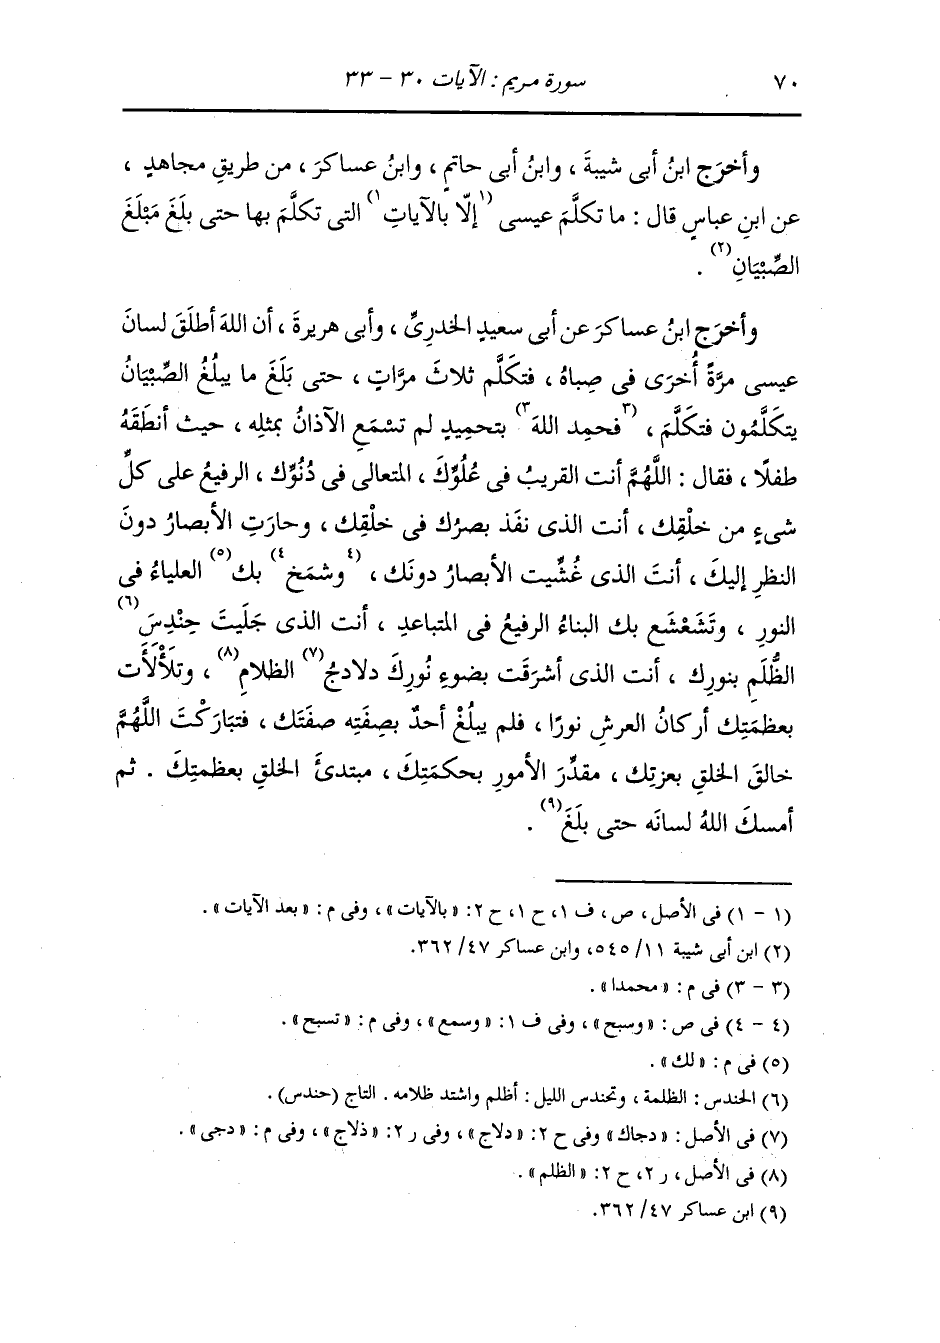 ٧٠ سورة مريم : الآيات ٣٠ - ٣٣
وأخرَج ابنُ أبى شيبةَ ، وابنُ أبى حاتمٍ ، وابنُ عساكرَ ، من طريقِ مجاهدٍ ،
عن ابنِ عباسٍ قال : ما تكلَّمَ عيسى (١إلَّا بالآياتِ١) التى تكلَّمَ بها حتى بلَغَ مَبْلَغَ
الصِّبْيَانِ(٢) .
وأخرَج ابنُ عساكرَ عن أبى سعيدٍ الخدرىِّ ، وأبى هريرةَ ، أن اللهَ أطلَقَ لسانَ
عيسى مرَّةً أُخرَى فى صِباهُ ، فتكلَّم ثلاثَ مرَّاتٍ ، حتى بَلَغَ ما يبلُغُ الصِّبْيَانُ
يتكلَّمُون فتكلَّمَ ، (٣فحمِد اللهَ٣) بتحمِيدٍ لم تسْمَعِ الآذانُ بمثلِه ، حيث أنطَقَهُ
طفلًا ، فقال : اللَّهُمَّ أنت القريبُ فى عُلُوِّكَ ، المتعالى فى دُنُوِّك ، الرفيعُ على كلِّ
شىءٍ من خلْقِك ، أنت الذى نفَذ بصرُك فى خلْقِك ، وحارَتِ الأبصارُ دونَ
النظرِ إليكَ ، أنتَ الذى غُشِّيت الأبصارُ دونَك ، (٤وشمَخ٤) بك(٥) العلياءُ فى
النورِ ، وتَشَعْشَع بك البناءُ الرفيعُ فى المتباعدِ ، أنت الذى جَلَيتَ حِنْدِسَ(٦)
الظُّلَمِ بنورِك ، أنت الذى أشرقَت بضوءِ نُورِكَ دلادجُ(٧) الظلامِ(٨) ، وتلَأْلَأَت
بعظمَتِك أركانُ العرشِ نورًا ، فلم يبلُغْ أحدٌ بصِفَتِه صفتَك ، فتبَارَكْتَ اللَّهُمَّ
خالقَ الخلقِ بعزتِك ، مقدِّرَ الأمورِ بحكمَتِكَ ، مبتدئَ الخلقِ بعظمتِكَ . ثم
أمسكَ اللهُ لسانَه حتى بلَغَ(٩) .
(١ - ١) فى الأصل ، ص ، ف ١، ح ١، ح ٢: « بالآيات » ، وفى م : « بعد الآيات » .
(٢) ابن أبى شيبة ١١/ ٥٤٥، وابن عساكر ٤٧/ ٣٦٢.
(٣ - ٣) فى م : « محمدا » .
(٤ - ٤) فى ص : « وسبح » ، وفى ف ١: « وسمع » ، وفى م : « تسبح » .
(٥) فى م : « لك » .
(٦) الحندس : الظلمة ، وتحندس الليل : أظلم واشتد ظلامه . التاج (حندس) .
(٧) فى الأصل : « دجاك » وفى ح ٢: « دلاج » ، وفى ر ٢: « ذلاج » ، وفى م : « دجى » .
(٨) فى الأصل ، ر ٢، ح ٢: « الظلم » .
(٩) ابن عساكر ٤٧/ ٣٦٢.